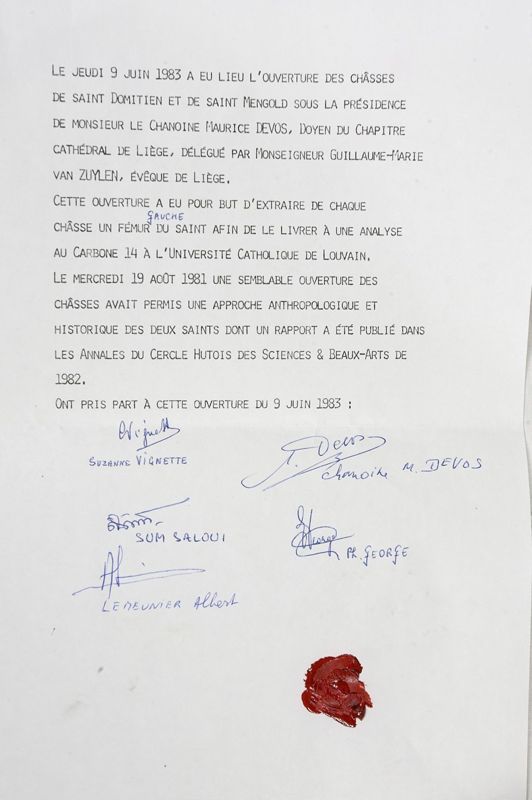 LE JEUDI 9 JUIN 1983 A EU LIEU L'OUVERTURE DES CHÂSSES
DE SAINT DOMITIEN ET DE SAINT MENGOLD SOUS LA PRÉSIDENCE
DE MONSIEUR LE CHANOINE MAURICE DEVOS, DOYEN DU CHAPITRE
CATHÉDRAL DE LIÈGE, DÉLÉGUÉ PAR MONSEIGNEUR GUILLAUME-MARIE
VAN ZUYLEN, ÉVÊQUE DE LIÈGE.
CETTE OUVERTURE A EU POUR BUT D'EXTRAIRE DE CHAQUE
GAUCHE
CHÂSSE UN FÉMUR DU SAINT AFIN DE LE LIVRER À UNE ANALYSE
AU CARBONE 14 À L'UNIVERSITÉ CATHOLIQUE DE LOUVAIN.
LE MERCREDI 19 AOÛT 1981 UNE SEMBLABLE OUVERTURE DES
CHÂSSES AVAIT PERMIS UNE APPROCHE ANTHROPOLOGIQUE ET
HISTORIQUE DES DEUX SAINTS DONT UN RAPPORT A ÉTÉ PUBLIÉ DANS
LES ANNALES DU CERCLE HUTOIS DES SCIENCES & BEAUX-ARTS DE
1982.
ONT PRIS PART À CETTE OUVERTURE DU 9 JUIN 1983 :
SUZANNE VIGNETTE
Devos
chanoine M. DEVOS
SUM SALOUI
George
Ph. GEORGE
LEMEUNIER Albert